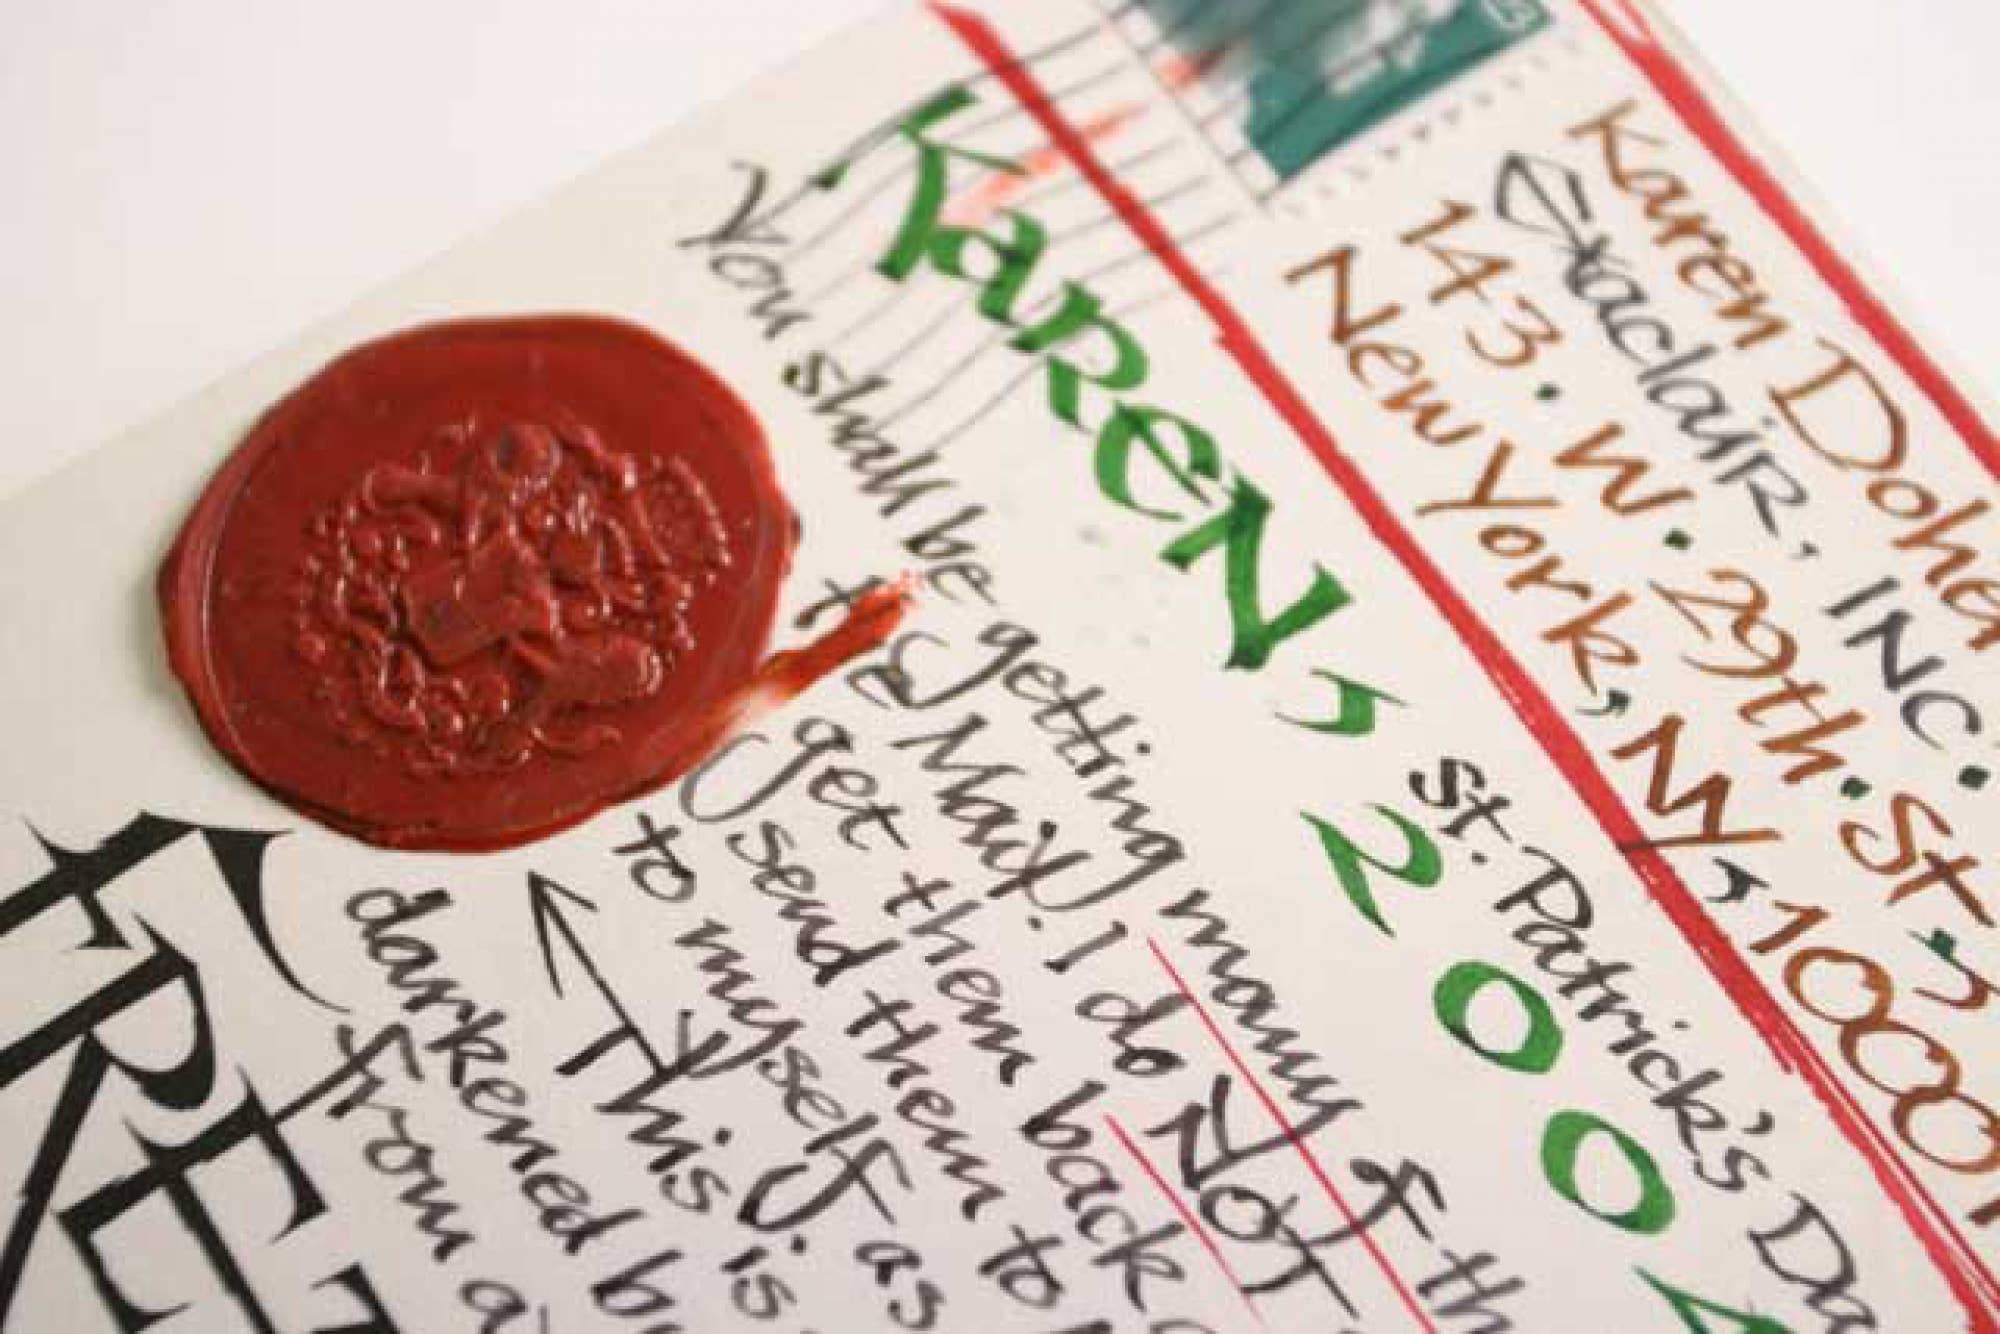 Karen Dohe
Exaclair, INC.
143. W. 29th. St,
New York, NY, 10001
Karen,
St. Patrick's Da
2004
You shall be getting many of th
the Mail. I do NOT
get them back
send them to
to myself. as
This is
darkened b
from a